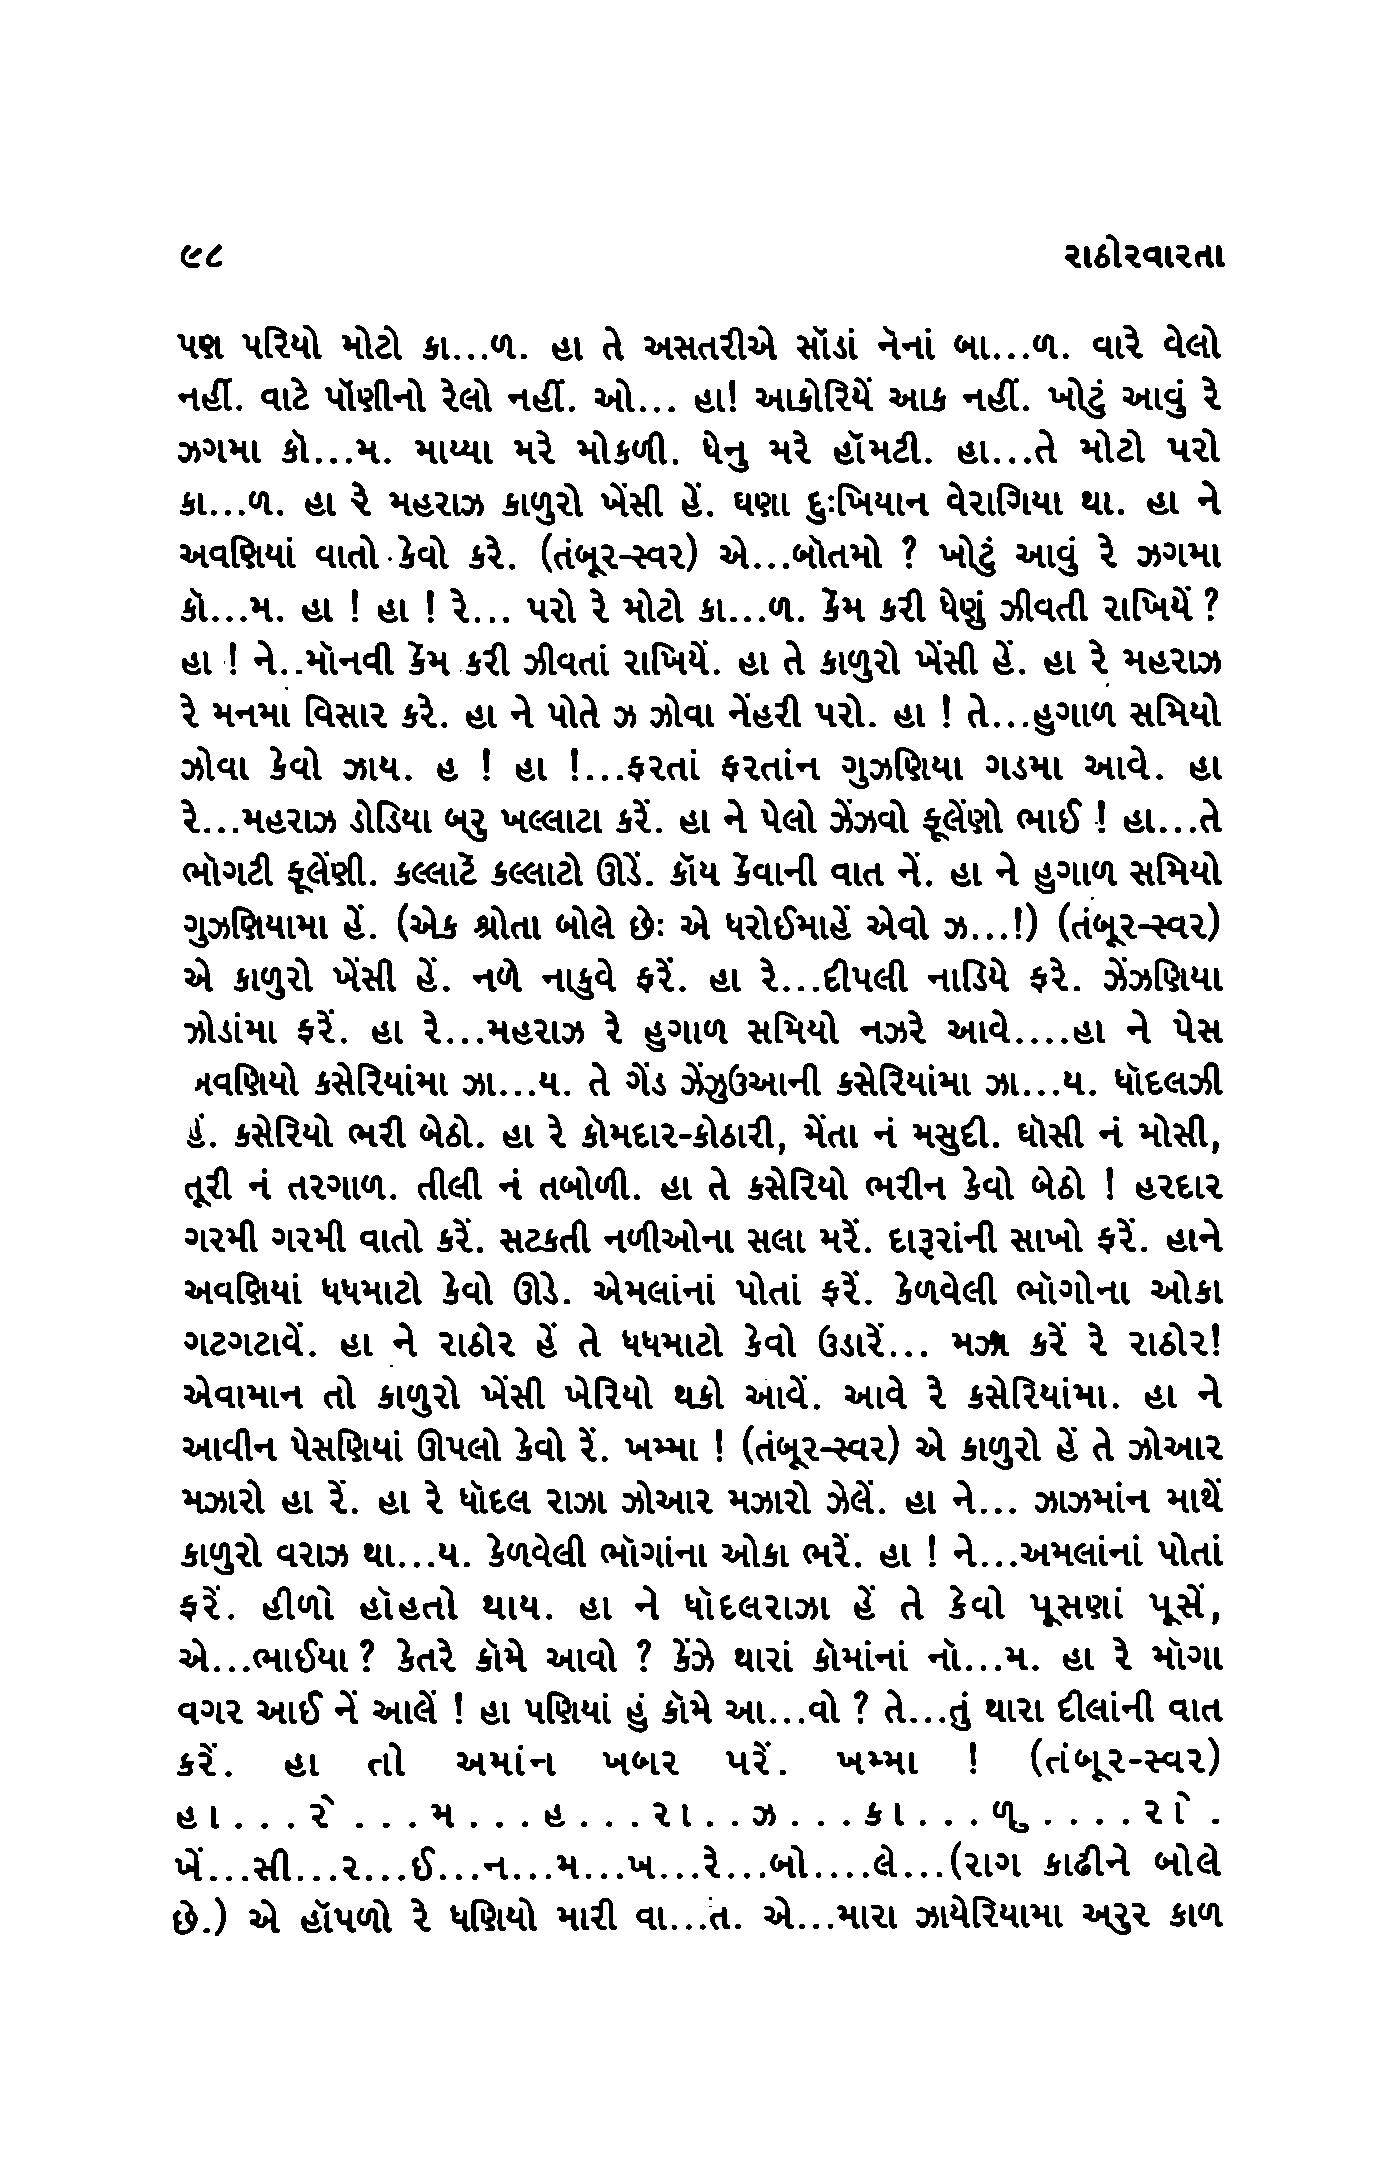 ૯૮ રાઠોરવારતા
પણ પરિયો મોટો કા...ળ. હા તે અસતરીએ સૉડાં નૅનાં બા...ળ. વારે વેલો
નહીં. વાટે પૉણીનો રેલો નહીં. ઓ... હા! આકોરિયેં આક નહીં. ખોટું આવું રે
ઝગમા કૉ...મ. માય્યા મરે મોકળી. ધેનુ મરે હૉમટી. હા...તે મોટો પરો
કા...ળ. હા રે મહરાઝ કાળુરો ખેંસી હેં. ઘણા દુઃખિયાન વેરાગિયા થા. હા ને
અવણિયાં વાતો કેવો કરે. (તંબૂર-સ્વર) એ...બૉતમો ? ખોટું આવું રે ઝગમા
કૉ...મ. હા ! હા ! રે... પરો રે મોટો કા...ળ. કેંમ કરી ધેણું ઝીવતી રાખિયેં ?
હા ! ને..મૉનવી કેંમ કરી ઝીવતાં રાખિયેં. હા તે કાળુરો ખેંસી હેં. હા રે મહરાઝ
રે મનમા વિસાર કરે. હા ને પોતે ઝ ઝોવા નેંહરી પરો. હા ! તે...હુગાળ સમિયો
ઝોવા કેવો ઝાય. હ ! હા !...ફરતાં ફરતાંન ગુઝણિયા ગડમા આવે. હા
રે...મહરાઝ ડોડિયા બ્રુ ખલ્લાટા કરેં. હા ને પેલો ઝેંઝવો ફૂલેંણો ભાઈ ! હા...તે
ભૉગટી ફૂલેંણી. કલ્લાટેં કલ્લાટો ઊડેં. કૉય કેંવાની વાત નેં. હા ને હુગાળ સમિયો
ગુઝણિયામા હેં. (એક શ્રોતા બોલે છેઃ એ ધરોઈમાહેં એવો ઝ...!) (તંબૂર-સ્વર)
એ કાળુરો ખેંસી હેં. નળે નાકુવે ફરેં. હા રે...દીપલી નાડિયે ફરે. ઝેંઝણિયા
ઝોડાંમા ફરેં. હા રે...મહરાઝ રે હુગાળ સમિયો નઝરે આવે....હા ને પેસ
અવણિયો કસેરિયાંમા ઝા...ય. તે ગેંડ ઝેંઝુઉઆની કસેરિયાંમા ઝા...ય. ધૉદલઝી
હેં. કસેરિયો ભરી બેઠો. હા રે કૉમદાર-કોઠારી, મેંતા નં મસુદી. ઘૉસી નં મોસી,
તૂરી નં તરગાળ. તીલી નં તબોળી. હા તે કસેરિયો ભરીન કેવો બેઠો ! હરદાર
ગરમી ગરમી વાતો કરેં. સટકતી નળીઓના સલા મરેં. દારૂરાંની સાખો ફરેં. હાને
અવણિયાં ધધમાટો કેવો ઊડે. એમલાંનાં પોતાં ફરેં. કેળવેલી ભૉગોના ઓકા
ગટગટાવેં. હા ને રાઠોર હેં તે ધધમાટો કેવો ઉડારેં... મઝા કરેં રે રાઠોર!
એવામાન તો કાળુરો ખેંસી ખેરિયો થકો આવેં. આવે રે કસેરિયાંમા. હા ને
આવીન પેસણિયાં ઊપલો કેવો રેં. ખમ્મા ! (તંબૂર-સ્વર) એ કાળુરો હેં તે ઝોઆર
મઝારો હા રેં. હા રે ધૉદલ રાઝા ઝોઆર મઝારો ઝેલેં. હા ને... ઝાઝમાંન માથેં
કાળુરો વરાઝ થા...ય. કેળવેલી ભૉગાંના ઓકા ભરેં. હા ! ને...અમલાંનાં પોતાં
ફરેં. હીળો હૉહતો થાય. હા ને ધૉદલરાઝા હેં તે કેવો પૂસણાં પૂસેં,
એ...ભાઈયા ? કેતરે કૉમે આવો ? કેંઝે થારાં કૉમાંનાં નૉ...મ. હા રે મૉગા
વગર આઈ નેં આલેં ! હા પણિયાં હું કૉમે આ...વો ? તે...તું થારા દીલાંની વાત
કરેં. હા તો અમાંન ખબર પરેં. ખમ્મા ! (તંબૂર-સ્વર)
હા...રે...મ...હ...રા..ઝ...કા...ળુ....રો.
ખેં...સી...ર...ઈ...ન...મ...ખ...રે...બો....લે...(રાગ કાઢીને બોલે
છે.) એ હૉપળો રે ધણિયો મારી વા...ત. એ...મારા ઝાયેરિયામા અરુર કાળ